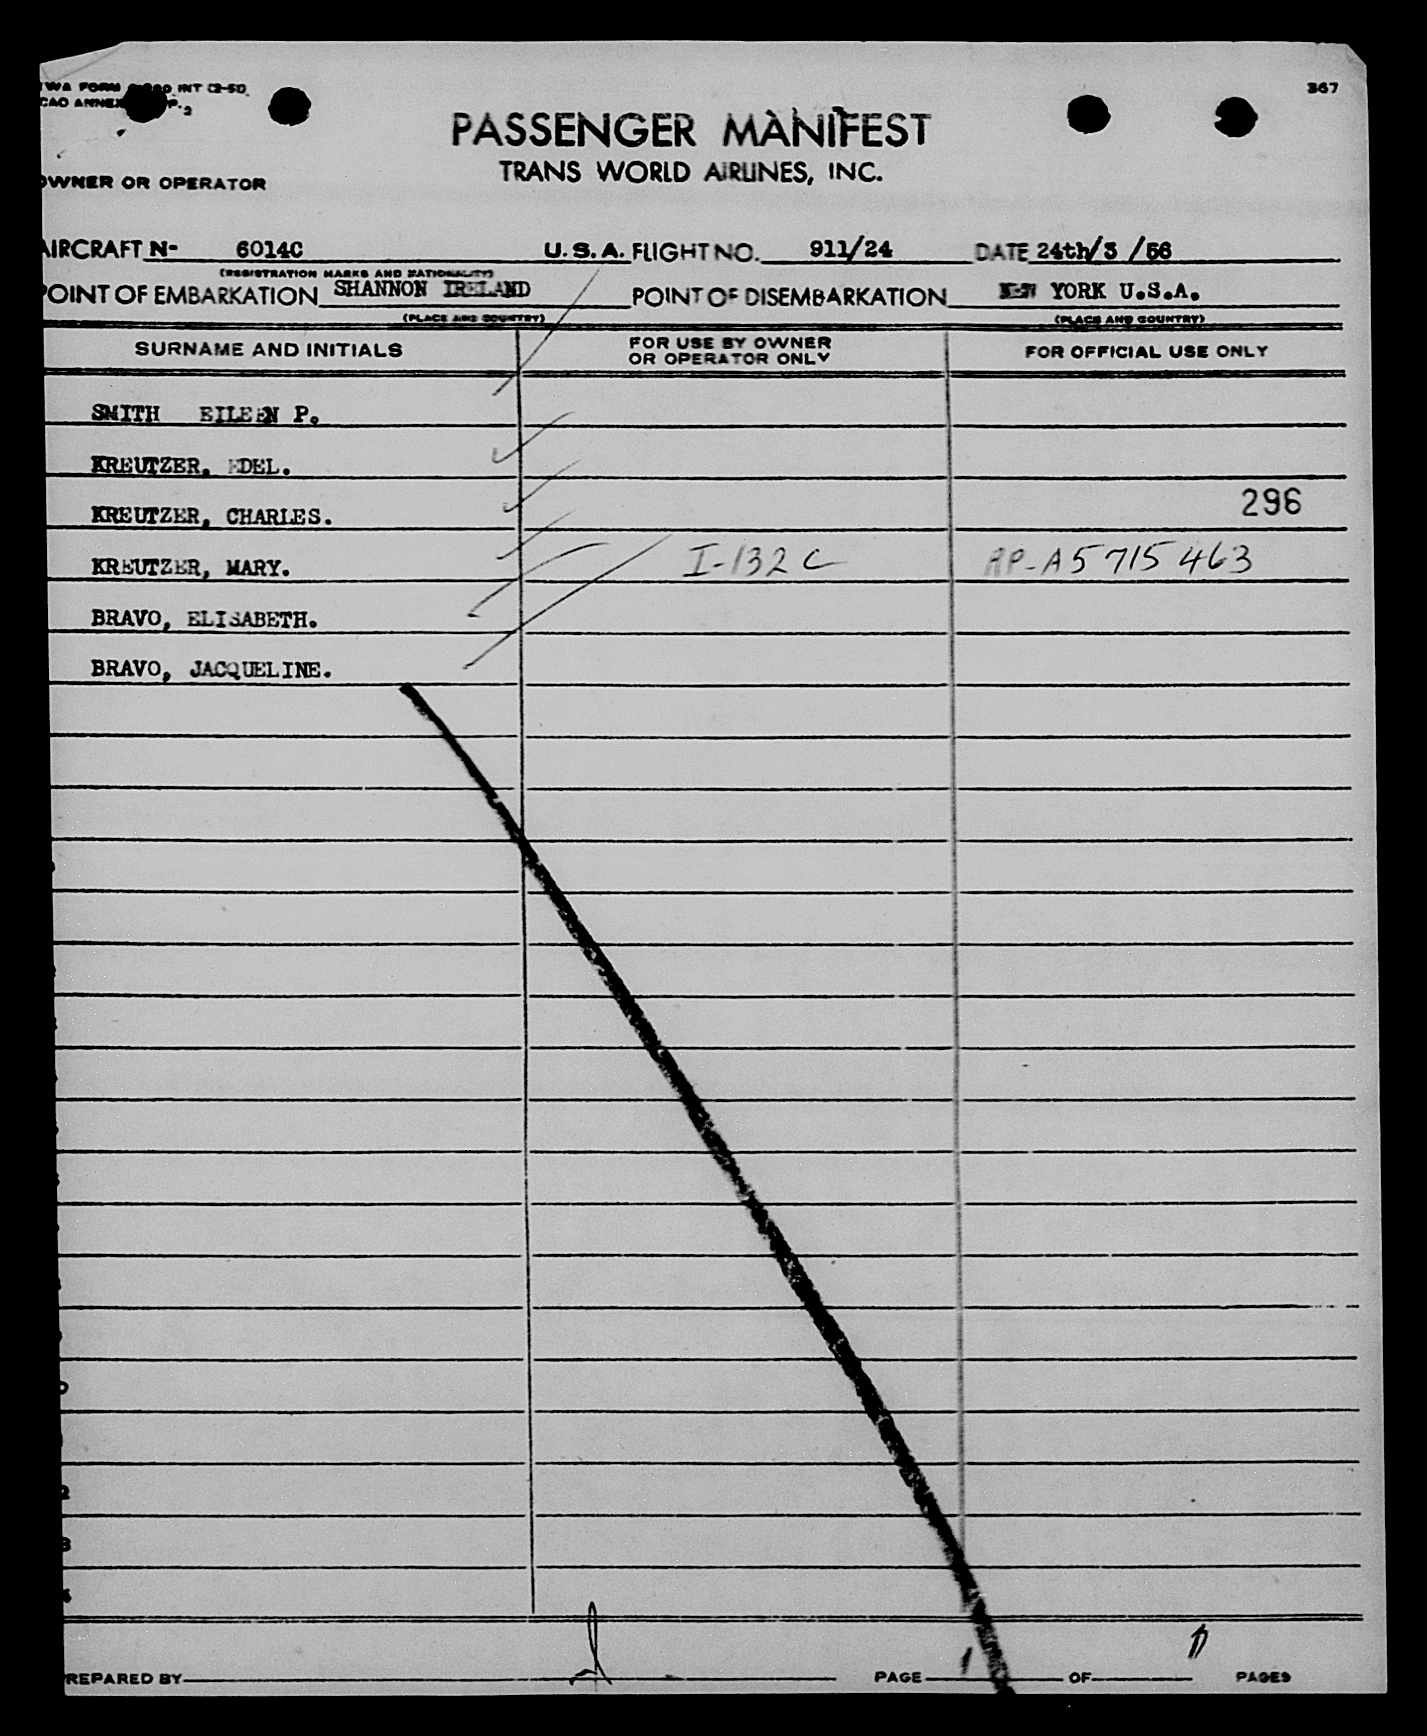 367
PASSENGER MANIFEST
TRANS WORLD AIRLINES, INC.
OWNER OR OPERATOR
AIRCRAFT N- 6014C U.S.A. FLIGHT NO. 911/24 DATE 24th/3 /56
(REGISTRATION MARKS AND NATIONALITY)
POINT OF EMBARKATION SHANNON IRELAND POINT OF DISEMBARKATION NEW YORK U.S.A.
(PLACE AND COUNTRY) (PLACE AND COUNTRY)
SURNAME AND INITIALS FOR USE BY OWNER OR OPERATOR ONLY FOR OFFICIAL USE ONLY
SMITH EILEEN P.
KREUTZER. EDEL.
KREUTZER, CHARLES. 296
KREUTZER, MARY. I-132C AP-A5715463
BRAVO, ELISABETH.
BRAVO, JACQUELINE.
PREPARED BY PAGE OF PAGES